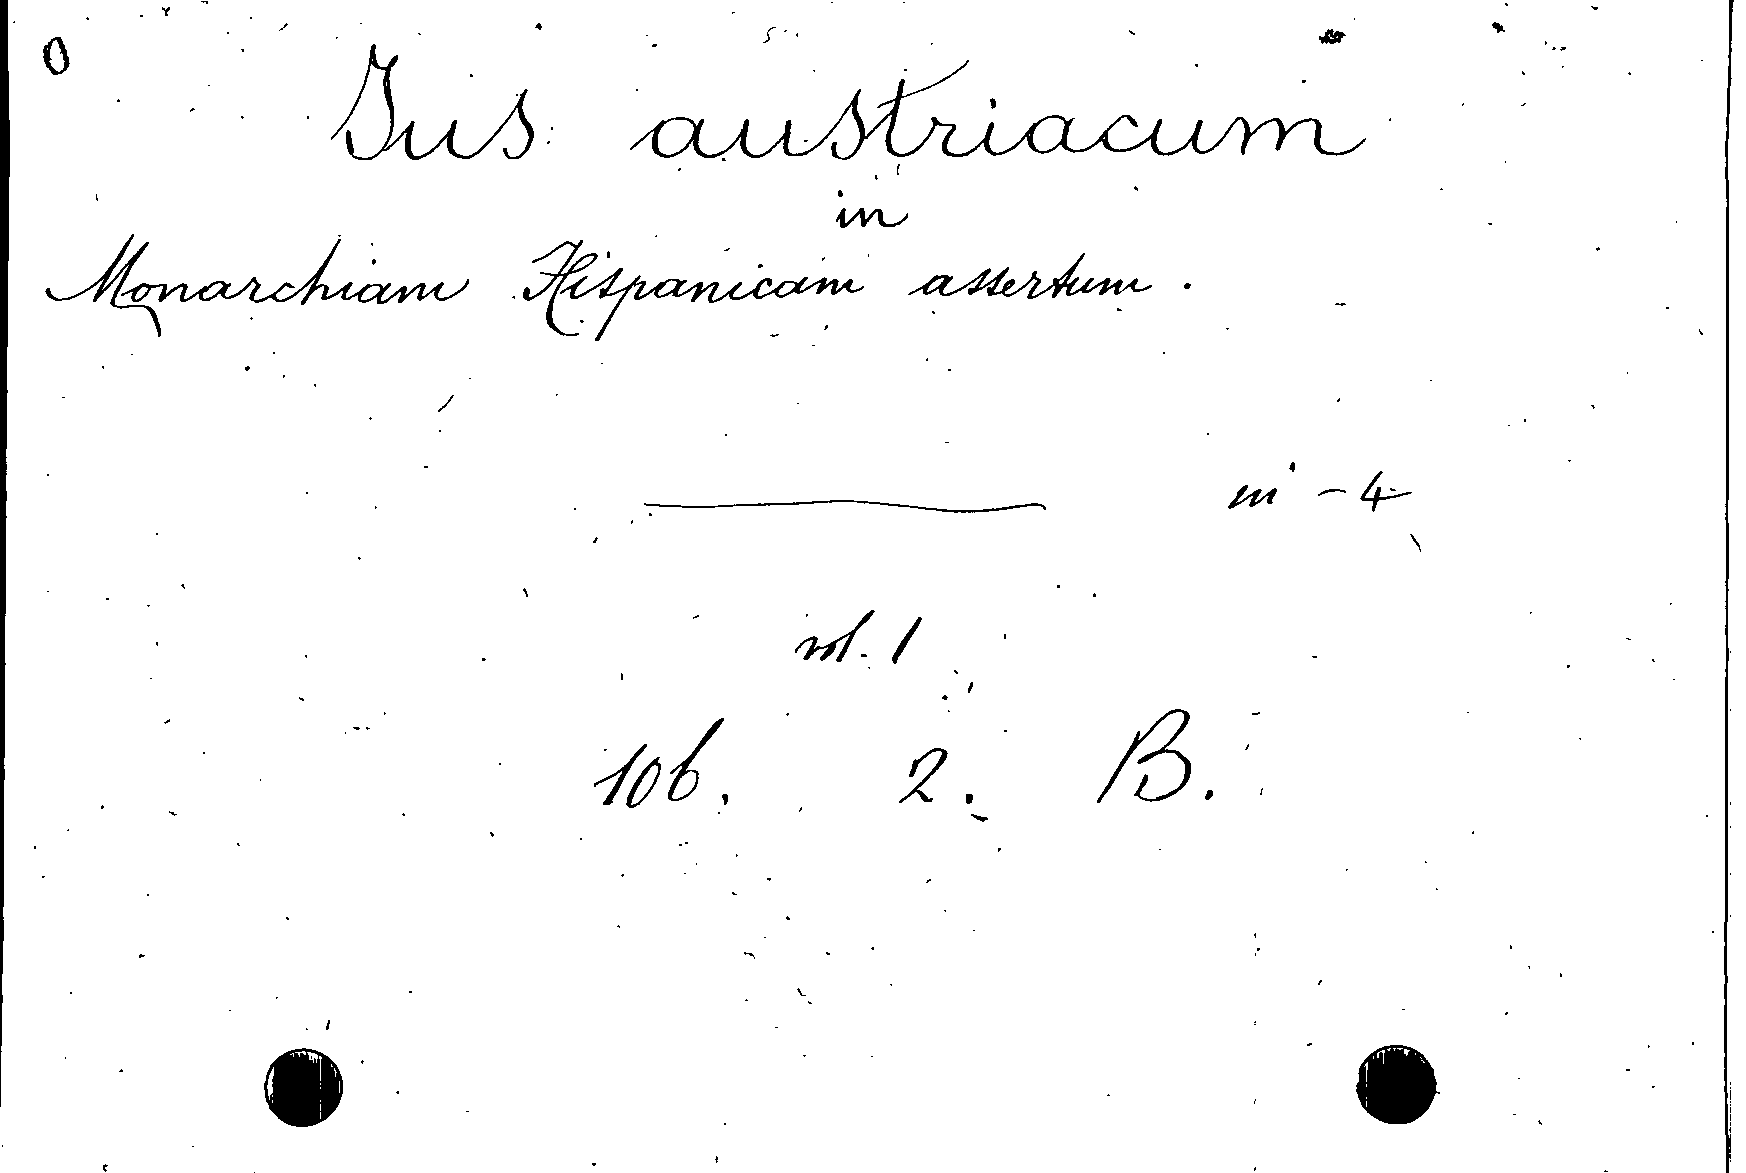 0
Jus austriacum
in
Monarchiam Hispanicam assertum.
in-4
vol. 1
106. 2. B.